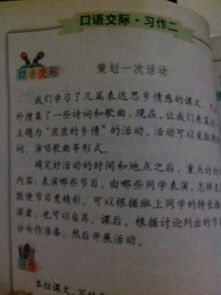 口语交际·习作二
口语交际
策划一次活动
我们学习了几篇表达思乡情感的课文,
外搜集了一些诗词和歌曲,现在,让我们来策划
主题为“浓浓的乡情”的活动。活动可以采取
词、演唱歌曲等形式。
确定好活动的时间和地点之后,重点讨论
内容:表演哪些节目,由哪些同学表演,怎样
能使节目更精彩。可以根据班上同学的特长
演者,也可以自荐。课后,根据讨论到的节
分头作准备,然后开展活动。
本组课文,